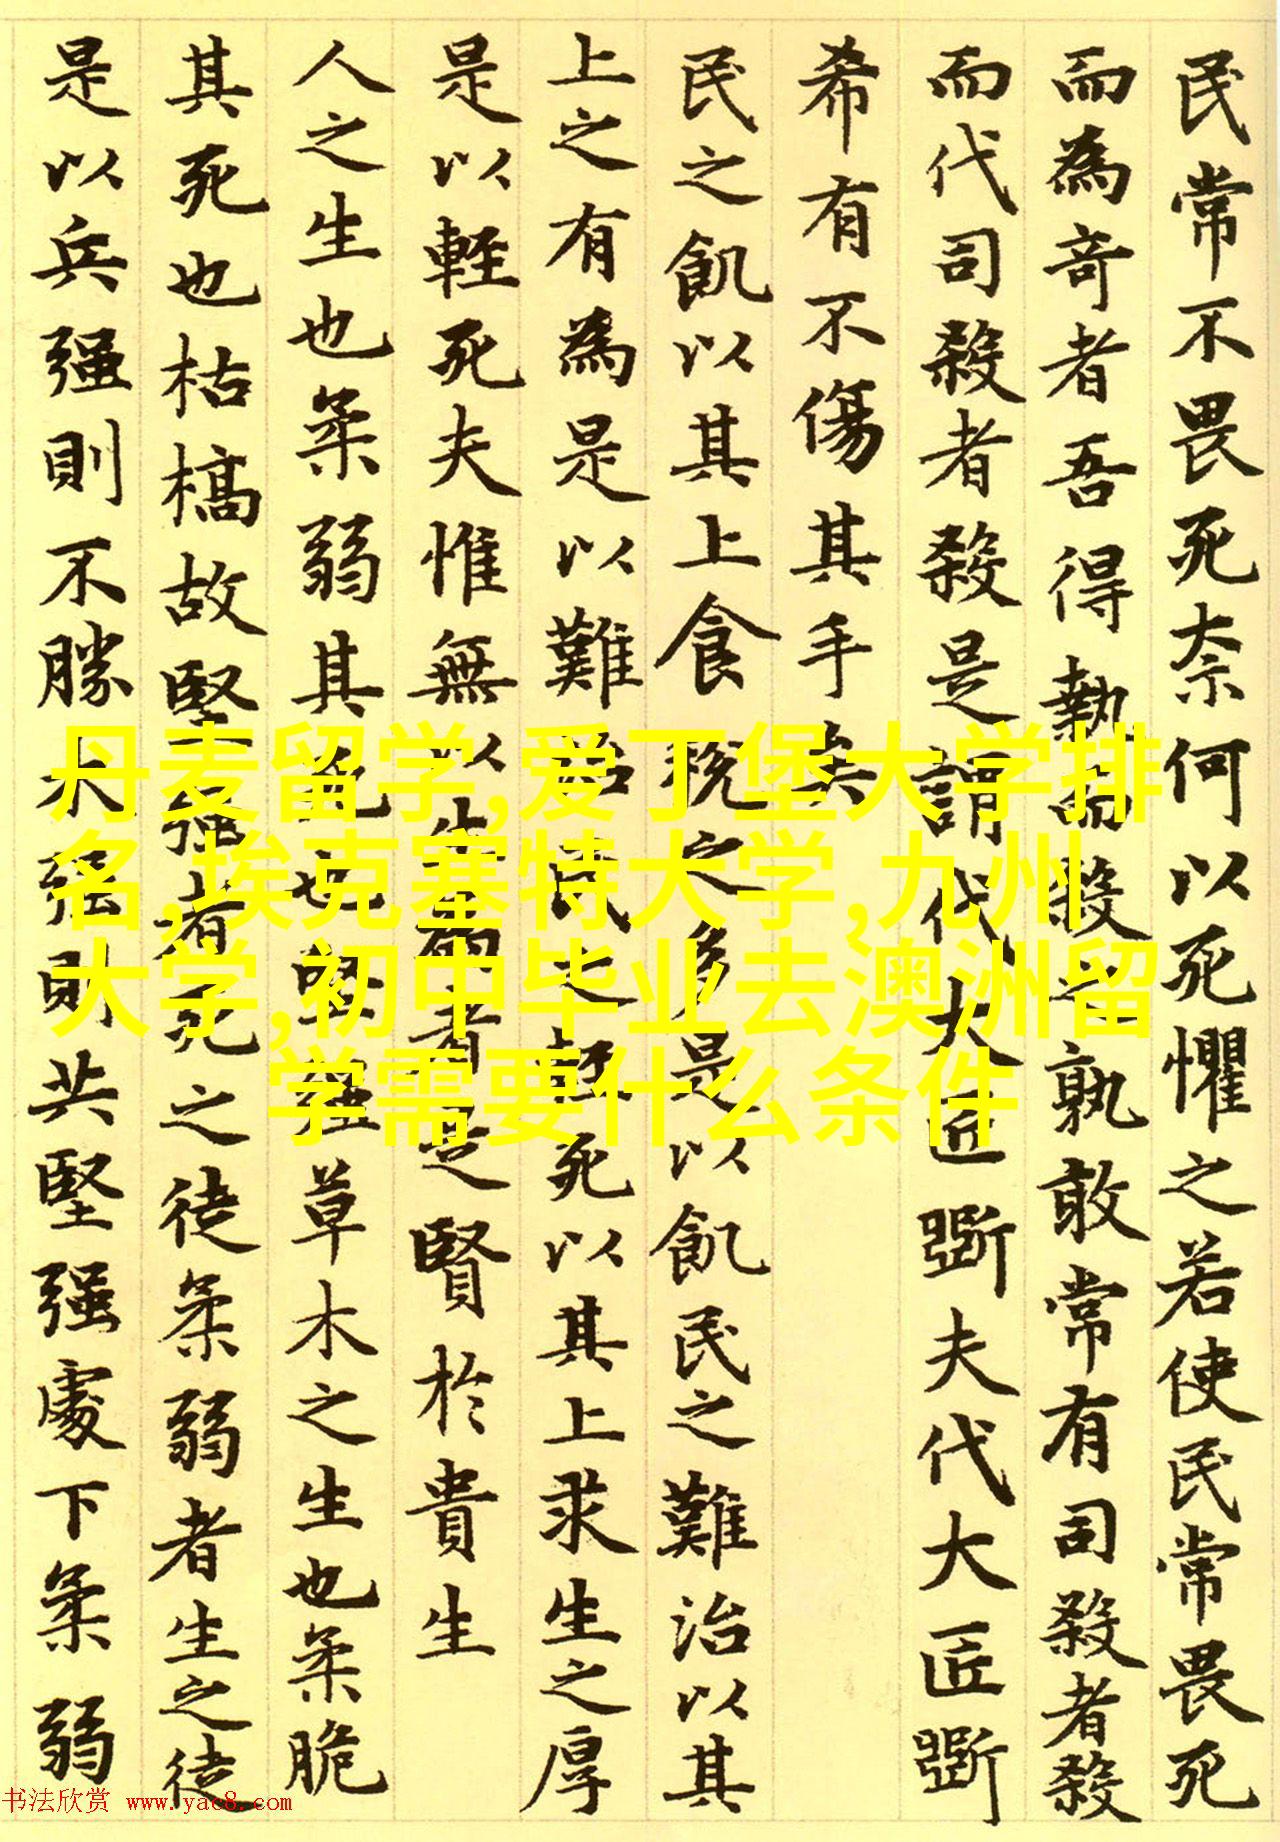 民常不畏死奈何以死懼之若使民常畏死
而為奇者吾得執而殺之孰敢常有司殺者殺
而代司殺者殺是謂代大匠斲夫代大匠斲
希有不傷其手矣
民之飢以其上食稅之多是以飢民之難治以其
上之有為是以難治民之輕死以其上求生之厚
是以輕死夫惟無以生為者是賢於貴生
人之生也柔弱其死也堅強草木之生也柔脆
其死也枯槁故堅强者死之徒柔弱者生之徒
是以兵强則不勝木强則共堅强處下柔弱
丹麦留学,爱丁堡大学排
名,埃克塞特大学,九州
大学,初中毕业去澳洲留
学需要什么条件
书法欣赏 www.yac8.com